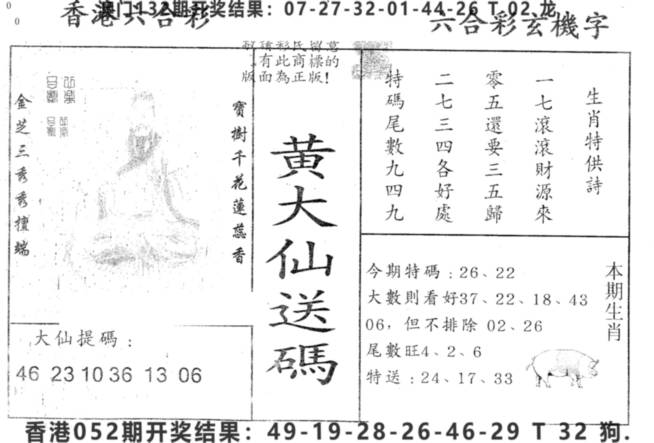 香港六合彩
澳门132期开奖结果：07-27-32-01-44-26 T 02 龙
六合彩玄機字
有此商標的
版面為正版！
金芝三秀秀檀端
寶樹千花蓮蕊香
黃大仙送碼
生肖特供詩
一七滾滾財源來
零五還要三五歸
二七三四各好處
特碼尾數九四九
大仙提碼：
46 23 10 36 13 06
本期生肖
今期特碼：26、22
大數則看好37、22、18、43
06，但不排除 02、26
尾數旺4、2、6
特送：24、17、33
香港052期开奖结果：49-19-28-26-46-29 T 32 狗.